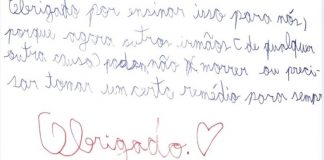 Obrigado por ensinar isso para nós,
porque agora outros irmãos (de qualquer
outra causa) podem não morrer ou preci-
sar tomar um certo remédio para sempre
Obrigado.